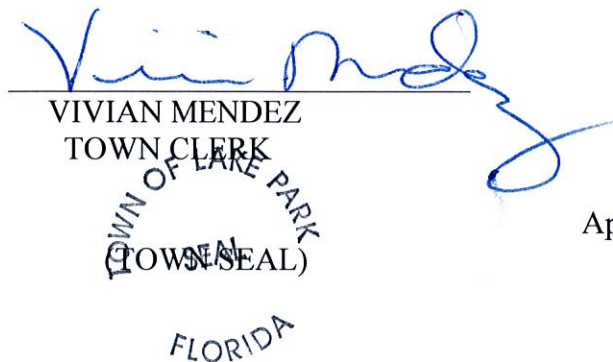 Vivian Mendez
VIVIAN MENDEZ
TOWN CLERK
TOWN OF LAKE PARK
SEAL
FLORIDA
(TOWN SEAL)
Ap